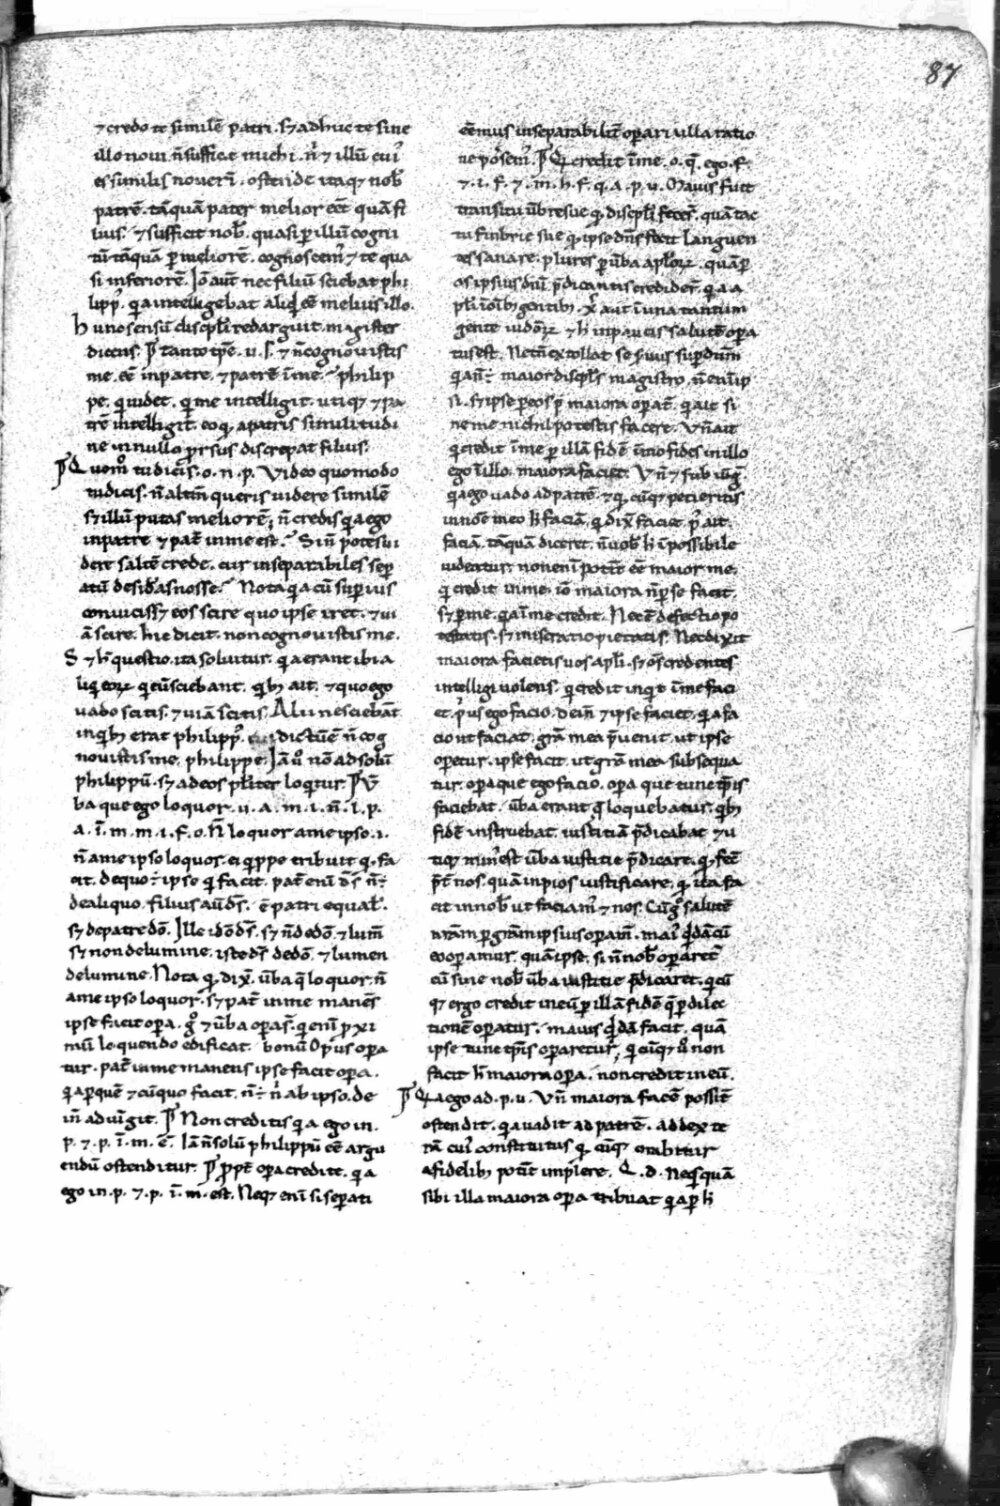 87
⁊ credo te similē patri. sꝫ adhuc te sine
illo noui. n̄ sufficit michi. n̄ ⁊ illū cui᷒
es similis nouerī. ostende itaqꝫ nob̄
patrē. tāquā pater melior eēt quā fi
lius. ⁊ sufficit nob̄. quasi ꝑ illū cogni
tū tāquā ꝑ meliorē. cognoscem᷒ ⁊ te qua
si inferiorē. Iō aut̄ nec filiū sciebat phi
lipp᷒. q̇a intelligebat aliq̇d eē melius illo.
hunc sensū discipl̄i redarguit magister
dicens. ꝑ tanto tp̄e. u. s. ⁊ n̄ cognouistis
me. eē in patre. ⁊ patrē ī me. philip
pe. q̇ uidet. q̇ me intelligit. utiqꝫ ⁊ pa
trē intelligit. eo qꝫ a patris similitudi
ne in nullo prorsus discrepat filius.
Quom̊ tu dicis. o. n. p. Video quomodo
tu dicis. n̄ alt̄m queris uidere similē
sꝫ illū putas meliorē. n̄ credis q̇a ego
in patre ⁊ pat̄ in me est. Si n̄ potes ui
dere saltē crede. cur inseparabiles sep̄
atū desid̄as nosse. Nota q̇a cū supius
conuicisset eos scire quo ipse iret. ⁊ ui
ā scire. hic dicit. non cognouistis me.
S ⁊ h̄ questio ita soluitur. q̇a erant ibi a
liq̇ eoꝝ q̇ eū sciebant. q̇bꝫ ait. ⁊ quo ego
uado scitis. ⁊ uiā scitis. Alii nesciebāt
in q̇bꝫ erat philipp᷒. cui dictū ē n̄ cog
nouistis me. philippe. Iā u̇ nō ad solū
philippū. sꝫ ad eos pl̄iter loq̇tur. ꝑ V̄
ba que ego loquor. u. a. m. i. n̄. l. p.
a. ī. m. m. i. f. o. N̄ loquor a me ipso. i.
n̄ a me ipso loquor. ei q̇ppe tribuit q̇. fa
cit. de quo ÷ ipse q̇ facit. pat̄ enī d̄s n̄ ÷
de aliquo. filius aū d̄s. ē patri equal̄.
sꝫ de patre dō. Ille iō d̄s. sꝫ n̄ de dō. ⁊ lum̄
sꝫ non de lumine. iste d̄s de dō. ⁊ lumen
de lumine. Nota q̇. dix̄. ūba q̄ loquor. n̄
a me ipso loquor. sꝫ pat̄ in me manēs
ipse facit oꝑa. g̊ ⁊ ūba oꝑa s̄. q̇ enī proxi
mū loquendo edificat. bonū op᷒ oꝑa
tur. pat̄ in me manens ipse facit oꝑa.
q̇a ꝑ quē ⁊ cū quo facit. n̄ ÷ n̄ ab ipso. de
in̄ adiūgit. ꝑ Non creditis q̇a ego in.
p. ⁊ p. ī. m. ē. Iā n̄ solū philippū eē argu
endū ostenditur. ꝑ propt̄ oꝑa credite. q̇a
ego in. p. ⁊. p. ī. m. est. Neqꝫ enī si seꝑati
eēmus inseparabiliū oꝑari ulla ratio
ne possem᷒. ꝑ Q̇ credit ī me. o. q̄. ego. f.
⁊. i. f. ⁊. m̄. h. f. q. a. p. u. Maius fuit
transitu ūbre sue q̇ discipl̄i fecer̄. quā tac
tu fimbrie sue q̇ ipse dn̄s fecit languen
tes sanare. plures ꝑ ūba apl̄oꝝ. quā ꝑ
os ipsius dn̄i p̄dicantis credider̄. q̇a a
pl̄i ī oībꝫ gentibꝫ. x᷒ aut̄ ī una tantum
gente iudeoꝝ ⁊ h̄ in paucis salutē oꝑa
tus est. Nec tn̄ extollat se seruus sup dn̄m
q̇a n̄ ÷ maior discipl̄s magistro. n̄ enī ip
si. sꝫ ipse ꝑ eos p̄ maiora oꝑat᷒. q̇a ait si
ne me nichil potestis facere. Vn̄ ait
q̇ credit ī me ꝑ illā fidē īmo fides in illo
ego ī illo. maiora faciet. Vn̄ ⁊ subiūg.
q̇a ego uado ad patrē. ⁊ q̇. cūqꝫ petieritis
in noīe meo h̄ faciā. q̇ dix̄ faciet. p̄ ait.
faciā. tāquā diceret. n̄ uob̄ h̄ īpossibile
uideatur. non enī poterit eē maior me.
q̇ credit in me. iō maiora n̄ ꝑ se facit.
sꝫ ꝑ me. q̇a ī me credit. Nec ē defectio po
testatis. sꝫ miseratio pietatis. Nec dixit
maiora facietis uos apl̄i. sꝫ oīs credentes
intelligi uolens. q̇ credit inq̇t ī me faci
et. p̄us ego facio. dein̄ ⁊ ipse faciet. q̇a fa
cio ut faciat. grā mea p̄uenit. ut ipse
oꝑetur. ipse facit. ut grā mea subsequa
tur. oꝑa que ego facio. oꝑa que tunc tp̄is
faciebat. ūba erant q̄ loquebatur. q̇bꝫ
fidē instruebat. iustitiā p̄dicabat ⁊ u
tiqꝫ min᷒ est ūba iustitie p̄dicare. q̇. fec̄
p̄t nos. quā impios iustificare. q̇. ita fa
cit in nob̄ ut faciam᷒ ⁊ nos. Cū g̊ salutē
nr̄am ꝑ grām ipsius oꝑam᷒. mai᷒ q̇dā cū
eo oꝑamur. quā ipse. si n̄ nob̄ oꝑaret᷒
cū sine nob̄ ūba iustitie p̄dicaret. q̇ cū
qꝫ ergo credit in eū ꝑ illā fidē q̄ ꝑ dilec
tionē oꝑatur. maius q̇dā facit. quā
ipse tunc tp̄is oꝑaretur. q̇ cūqꝫ u̇ non
facit h̄ maiora oꝑa. non credit in eū.
ꝑ Q̇a ego ad. p. u. Vn̄ maiora facē possīt
ostendit. q̇a uadit ad patrē. ad dexte
rā cui᷒ constitutus q̇. cūqꝫ orabitur
a fidelibꝫ potīt implere. Q. d. Neq̇squā
sibi illa maiora oꝑa tribuat q̇a ꝑ h̄